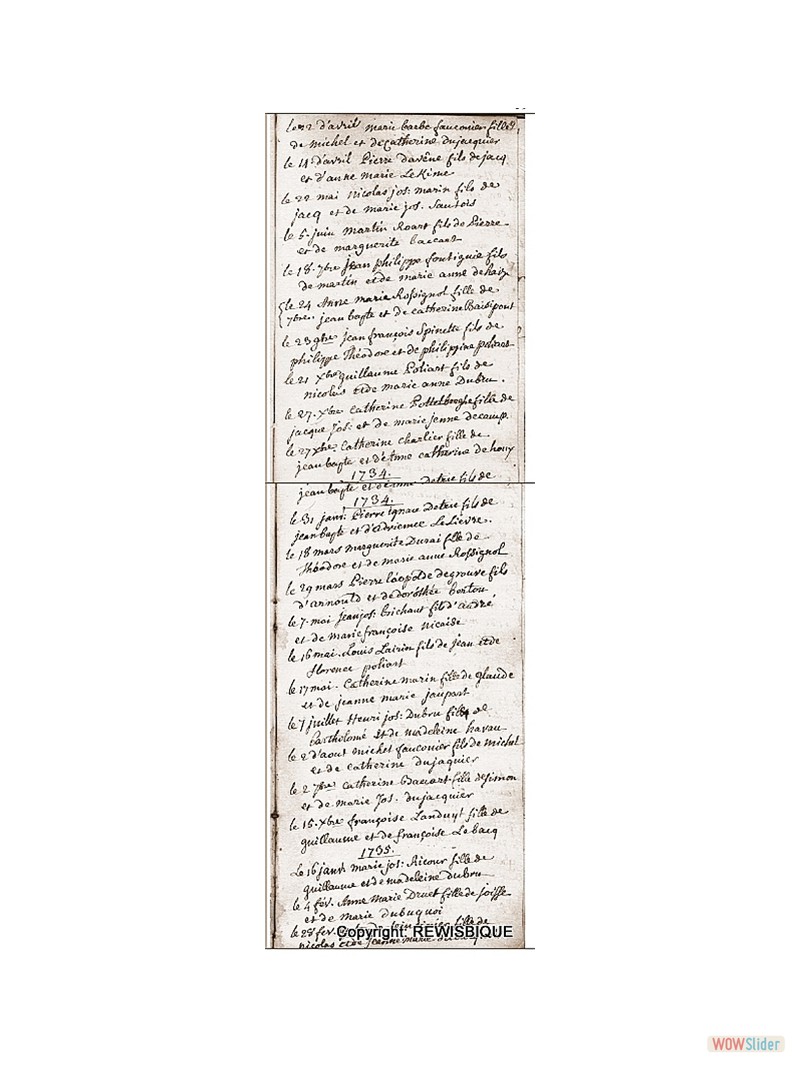 le 22 d'avril marie barbe fauconier fille
de michel et de Catherine Dujacquier
le 14 d'avril Pierre davêne fils de jacq
et d'anne marie Le Kime
le 22 mai Nicolas jos: marin fils de
jacq et de marie jos. Sautois
le 5 juin Martin Roart fils de Pierre
et de marguerite baccart
le 18. 7bre jean philippe fontignie fils
de martin et de marie anne dehaix
le 24 Anne marie Rossignol fille de
7bre. jean bapte et de catherine Baisipont
le 23 9bre jean françois Spinette fils de
philippe Théodore et de philippine poliart
le 21 Xbre guillaume Poliart fils de
nicolas et de marie anne Dubru.
le 27. Xbre Catherine Pottelberghe fille de
jacque Jos: et de marie jenne decamp.
le 27 Xbre Catherine charlier fille de
jean bapte et d'Anne catherine de houx
1734.
jean bapte et d'Anne
1734.
le 31 janv: Pierre Ignace Detrie fils de
jean bapte et d'adrienne Le Lievre.
le 18 mars Marguerite Durai fille de
Théodore et de marie anne Rossignol
le 29 mars Pierre léopolde degrouve fils
d'arnould et de dorothée berton
le 7. mai jean jos: brichant fils d'andré
et de marie françoise nicaise
le 16 mai. Louis Lairin fils de jean et de
florence poliart
le 17 mai. Catherine marin fille de glaude
et de jeanne marie jaupart
le 7 juillet Henri jos: Dubru fils de
barthelomé et de madeleine havau
le 2 d'aout michel fauconier fils de michel
et de catherine dujaquier
le 2 7bre Catherine Baccart fille de simon
et de marie Jos. dujacquier
le 15. Xbre françoise Landuyt fille de
guillaume et de françoise Le bacq
1735.
Le 16 janv. marie jos: Ricour fille de
guillaume et de madeleine dubru
le 4 fév. Anne Marie Druet fille de joisse
et de marie dubuquoi
le 28 fev. fille de
nicolas et de jeanne marie
Copyright: REWISBIQUE
WOWSlider